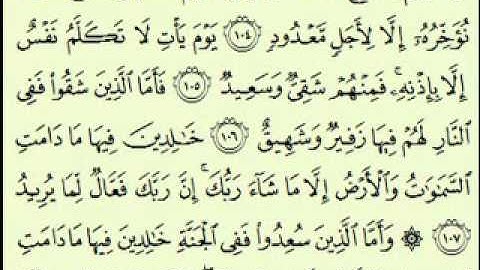 نُؤَخِّرُهُۥٓ إِلَّا لِأَجَلٍ مَّعْدُودٍ ١٠٤ يَوْمَ يَأْتِ لَا تَكَلَّمُ نَفْسٌ
إِلَّا بِإِذْنِهِۦ ۚ فَمِنْهُمْ شَقِىٌّ وَسَعِيدٌ ١٠٥ فَأَمَّا ٱلَّذِينَ شَقُوا۟ فَفِى
ٱلنَّارِ لَهُمْ فِيهَا زَفِيرٌ وَشَهِيقٌ ١٠٦ خَٰلِدِينَ فِيهَا مَا دَامَتِ
ٱلسَّمَٰوَٰتُ وَٱلْأَرْضُ إِلَّا مَا شَآءَ رَبُّكَ ۚ إِنَّ رَبَّكَ فَعَّالٌ لِّمَا يُرِيدُ
١٠٧ ۞ وَأَمَّا ٱلَّذِينَ سُعِدُوا۟ فَفِى ٱلْجَنَّةِ خَٰلِدِينَ فِيهَا مَا دَامَتِ